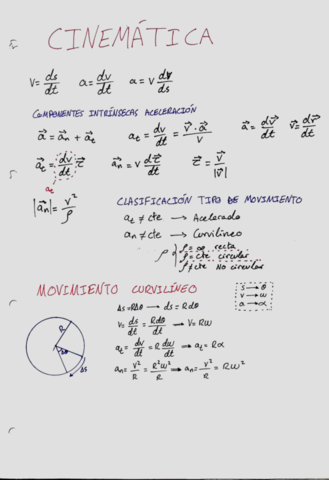 CINEMÁTICA
v = ds/dt   a = dv/dt   a = v dv/ds
COMPONENTES INTRÍNSECAS ACELERACIÓN
a⃗ = a⃗n + a⃗t   at = dv/dt = v⃗·a⃗/v   a⃗ = dv⃗/dt   v⃗ = dr⃗/dt
a⃗t = dv/dt τ⃗   a⃗n = v dτ⃗/dt   τ⃗ = v⃗/|v⃗|
at
|a⃗n| = v²/ρ
CLASIFICACIÓN TIPO DE MOVIMIENTO
at ≠ cte → Acelerado
an ≠ cte → Curvilíneo
ρ { ρ = ∞ recta
ρ = cte circular
ρ ≠ cte No circular
MOVIMIENTO CURVILÍNEO
s → θ
v → ω
a → α
Δs = RΔθ → ds = Rdθ
v = ds/dt = Rdθ/dt → v = Rω
at = dv/dt = R dω/dt → at = Rα
an = v²/R = R²ω²/R → an = v²/R = Rω²
R
Δθ
Δs